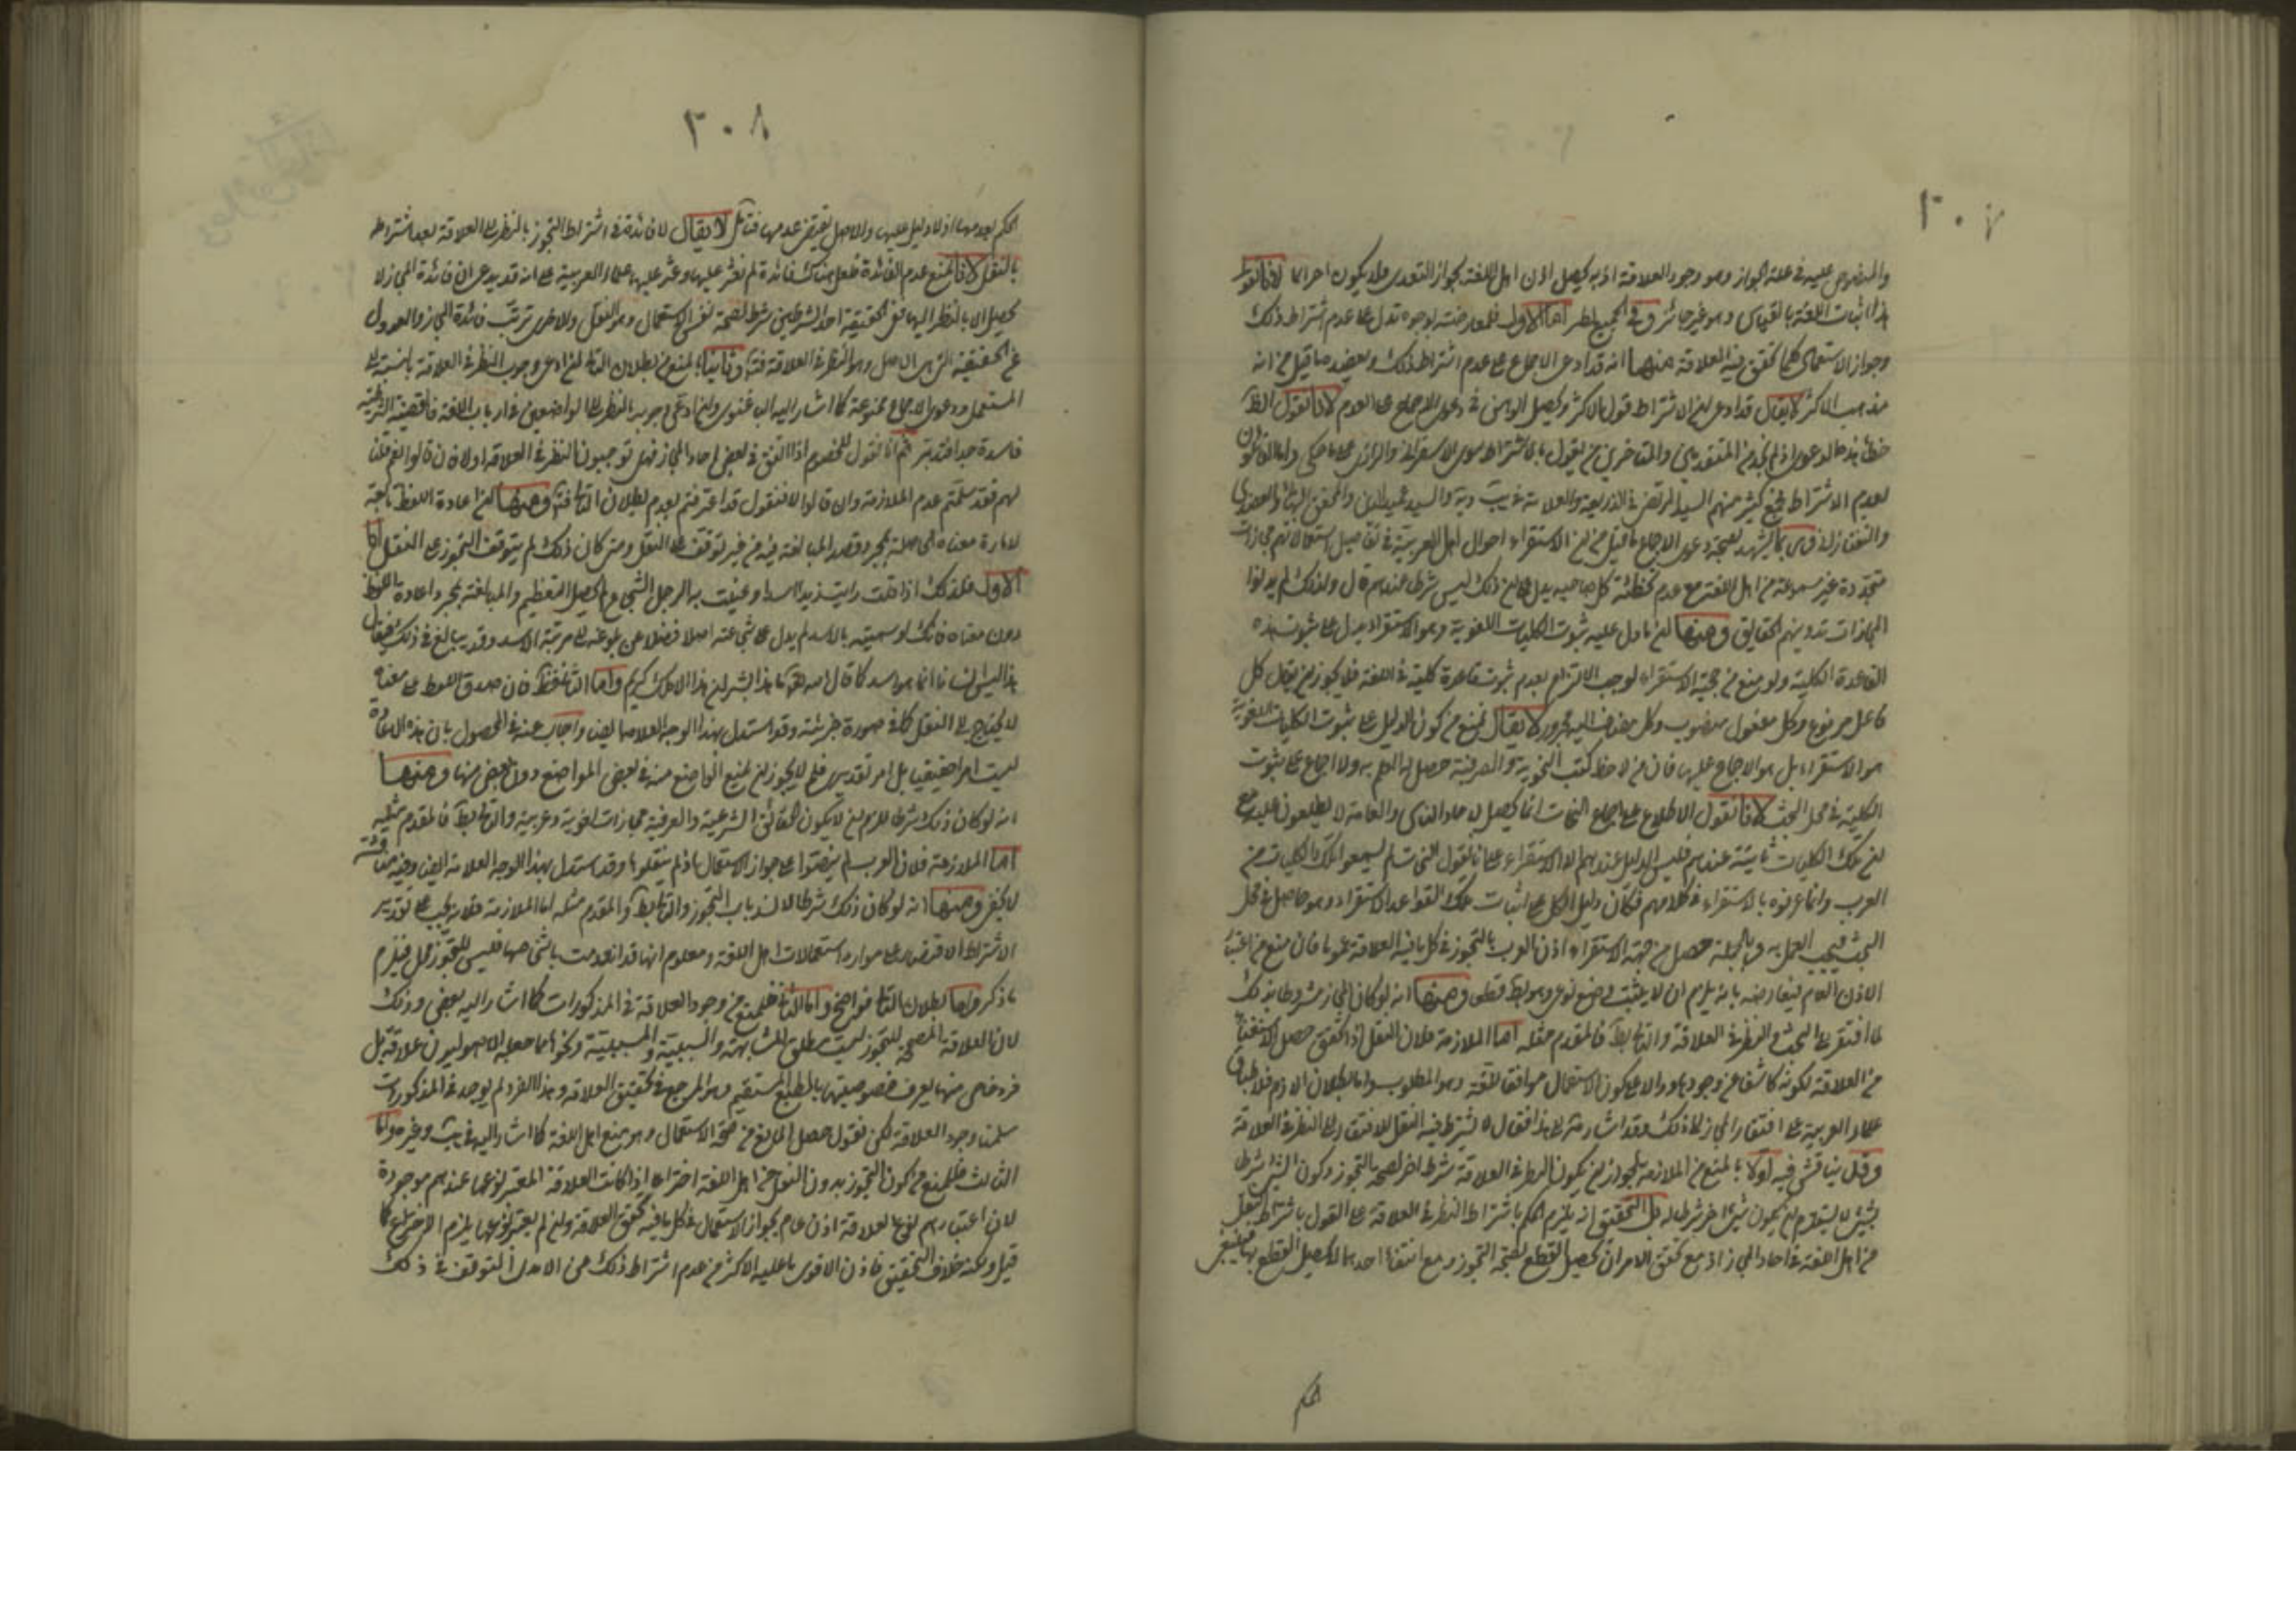 ٣٠٧
والمنصوص عليه في علة الجواز وهو وجود العلاقة اذ به يحصل اذن اهل اللغة بجواز التعدى فلا يكون احراما لانا نقول
هذا اثبات اللغة بالقياس وهو غير جائز وفي الجميع نظر اما الاول فلمعارضته بوجوه تدل على عدم اشتراط ذلك
وجواز الاستعمال كلما تحقق فيه العلاقة منها انه قد ادعى الاجماع على عدم اشتراط ذلك ويعضده ما قيل من انه
مذهب الاكثر لا يقال قد ادعى ان الاشتراط قول الاكثر ويحصل الوهن في دعوى الاجماع على العدم لانا نقول الظ
خطأ هذه الدعوى اذ لم نجد من المتقدمين والمتاخرين من يقول بالاشتراط سوى الاسفرائنى والرازى على ما حكى واما القائلون
لعدم الاشتراط فجمع كثير منهم السيد المرتضى في الذريعة والعلامة في يب وية والسيد عميد الدين والمحقق البهائى والعضدى
والتفتازانى ومما يشهد لصحة دعوى الاجماع ما قيل من ان الاستقراء احوال اهل العربية في تفاصيل استعمالاتهم مجازات
متجددة غير مسموعة من اهل اللغة مع عدم تخطئة كل صاحبه يدل على ان ذلك ليس شرطا عندهم قال ولذلك لم يدونوا
المجازات تدوينهم الحقايق ومنها ان ما دل عليه ثبوت الكليات اللغوية وهو الاستقراء يدل على ثبوت هذه
القاعدة الكلية ولو منع من حجية الاستقراء لوجب الالتزام بعدم ثبوت قاعدة كلية في اللغة فلا يجوز ان يقال كل
فاعل مرفوع وكل مفعول منصوب وكل مضاف اليه مجرور لا يقال نمنع من كون الدليل على ثبوت الكليات اللغوية
هو الاستقراء بل هو الاجماع عليها فان من لاحظ كتب النحوية والصرفية حصل له العلم به ولا اجماع على ثبوت
الكلية في محل البحث لانا نقول الاطلاع على اجماع النحات انما يحصل لاحاد الناس والعامة لا يطلعون عليه مع
ان تلك الكليات ثابتة عندهم فليس الدليل عندهم الا الاستقراء على انا نقول النحات لم يسمعوا تلك الكليات من
العرب وانما عرفوه بالاستقراء في كلامهم فكان دليل الكل على اثبات تلك القواعد الاستقراء وهو حاصل في محل
البحث فيجب العمل به وبالجملة حصل من جهة الاستقراء اذن العرب بالتجوز في كل ما فيه العلاقة عموما فان منع من اعتبار
الاذن العام فيعارضه بانه يلزم ان لا يثبت وضع نوعى وهو بط قطعا ومنها انه لو كان المجاز مشروطا بذلك
لما افتقر الى البحث والنظر في العلاقة والتالى بط فالمقدم مثله اما الملازمة فلان النقل اذا تحقق حصل الاستغناء
من العلاقة لكونه كاشفا عن وجودها ودالا على كون الاستعمال موافقا للغة وهو المطلوب واما بطلان اللازم فلاطباق
علماء العربية على افتقار المجاز لذلك وقد اشار الى هذا فقال لا يشترط فيه النقل للافتقار الى النظر في العلاقة
وقد يناقش فيه اولا بالمنع من الملازمة لجواز ان يكون النظر في العلاقة شرطا اخر لصحة التجوز وكون الشئ شرطا
بشئ لا يستلزم ان لا يكون شئ اخر شرطا له بل التحقيق انه يلزم الحكم باشتراط النظر في العلاقة على القول باشتراط النقل
من اهل اللغة في احاد المجاز اذ مع تحقق الامران يحصل القطع لصحة التجوز ومع انتفاء احدهما لا يحصل القطع بها فينبغى
الحكم
٣٠٨
الحكم بعدمها اذ لا دليل عليها والاصل يقتضى عدمها فتامل لا يقال لا فائدة في اشتراط التجوز بالنظر الى العلاقة بعد اشتراطه
بالنقل لانا نمنع عدم الفائدة فلعل هناك فائدة لم نعثر عليها وعثر عليها علماء العربية على انه قد يدعى ان فائدة المجاز لا
تحصل الا بالنظر اليها ففى الحقيقة احد الشرطين شرط لصحة نفس الاستعمال وهو النقل والاخر ترتب فائدة المجاز والعدول
عن الحقيقة التى هى الاصل وهو النظر في العلاقة فتامل وثانيا بالمنع من بطلان التالى ان ادعى وجوب النظر في العلاقة بالنسبة الى
المستعمل ودعوى الاجماع ممنوعة كما اشار اليه الباغنوى وان ادعى وجوب النظر الى الواضعين في ارباب اللغة فالقضية الشرطية
فاسدة جدا فتدبر ثم انا نقول للخصوم اذا اتفق في بعض احاد المجاز فهل توجبون النظر في العلاقة اولا فان قالوا نعم قلنا
لهم فقد سلمتم عدم الملازمة وان قالوا لا فنقول قد اعترفتم بعدم بطلان التالى فتامل ومنها ان اعادة اللفظ تابعة
لاعارة معناه الحاصلة بمجرد قصد المبالغة فيه من غير توقف على النقل ومتى كان ذلك لم يتوقف التجوز على النقل اما
الاول فلذلك اذا قلت رايت زيدا اسدا وعنيت به الرجل الشجاع لم يحصل التعظيم والمبالغة بمجرد اعادة اللفظ
دون معناه فانك لو سميته بالاسد لم يدل على شجاعته اصلا فضلا عن بلوغه الى مرتبة الاسد وقد يبالغ في ذلك فيقال
هذا ليس انسانا انما هو اسد كما قال الله تعالى ما هذا بشرا ان هذا الا ملك كريم واما الثانى فظ فان صدق اللفظ على معناه
لا يحتاج الى النقل كما في صورة جزئية وقد استدل بهذا الوجه العلامة ايضا واجاب عنه في المحصول بان هذه الاعارة
ليست امرا حقيقيا بل امر تقديرى فلم لا يجوز ان يمنع الواضع منه في بعض المواضع دون بعض منها ومنها
انه لو كان ذلك شرطا للزم ان لا يكون الحقائق الشرعية والعرفية مجازات لغوية وعربية والتالى بط فالمقدم مثله
اما الملازمة فلان العرب لم ينصوا على جواز الاستعمال اذ لم ينقلوها وقد استدل بهذا الوجه العلامة ايضا وفيه مناقشة
لا تخفى ومنها انه لو كان ذلك شرطا لانسد باب التجوز والتالى بط فالمقدم مثله اما الملازمة فلانه يجب على تقدير
الاشتراط الاقتصار على موارد استعمالات اهل اللغة ومعلوم انها قد انعدمت باشخاصها فليس للتجوز محل فيلزم
ما ذكر واما بطلان التالى فواضح واما الثانى فللمنع من وجود العلاقة في المذكورات كما اشار اليه بعض وذلك
لان العلاقة المصححة للتجوز ليست مطلق المشابهة والسببية والمسببية ونحوها مما جعله الاصوليون علاقة بل
فرد خاص منها يعرف خصوصيتها بالطبع المستقيم وهو المرجع في تحقيق العلاقة وهذا الفرد لم يوجد في المذكورات
سلمنا وجود العلاقة لكن نقول حصل المانع من صحة الاستعمال وهو منع اهل اللغة كما اشار اليه في يب وغيره واما
الثالث فللمنع من كون التجوز بدون النقل من اهل اللغة اختراعا اذا كانت العلاقة المعتبر نوعها عندهم موجودة
لان اعتبارهم نوع العلاقة اذن عام بجواز الاستعمال في كل ما فيه تحقق العلاقة وان لم يعتبر نوعها يلزم الاختراع كما
قيل ولكنه خلاف التحقيق فاذن الاقوى ما عليه الاكثر من عدم اشتراط ذلك حتى الامدى المتوقف في ذلك